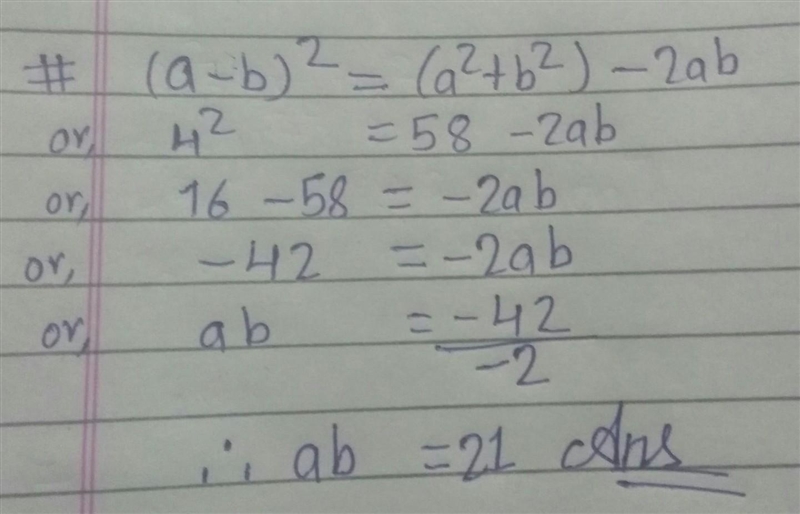 # (a-b)² = (a²+b²) - 2ab
or, 4² = 58 - 2ab
or, 16 - 58 = -2ab
or, -42 = -2ab
or, ab = -42/-2
∴ ab = 21 Ans